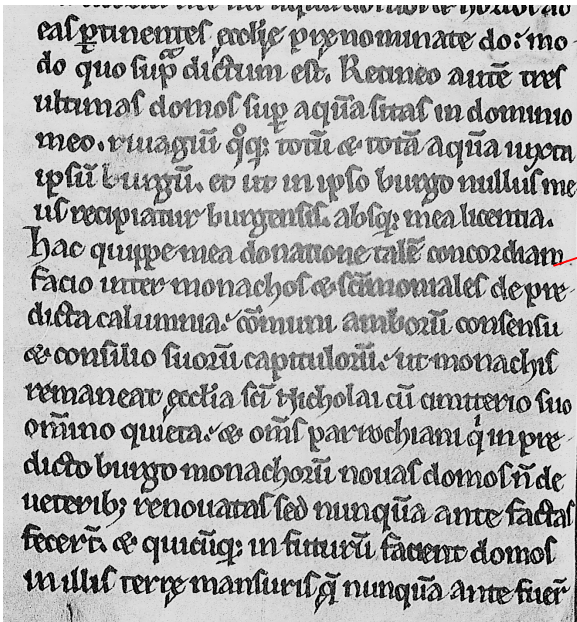 eas ꝑtinentes ecclię pręnominate do: mo-
do quo sup̃ dictum est. Retineo autē tres
ultimas domos suꝑ aquā sitas in dominio
meo. riuagiū q̊q; totū & totā aquā iuxta
ipsū burgū. et ut in ipso burgo nullus me
us recipiatur burgensis. absq; mea licentia.
Hac quippe mea donatione talē concordiam
facio inter monachos & scīmoniales de pre-
dicta calumnia. cōmuni amborū consensu
& consilio suorū capitulorū. ut monachis
remaneat ecclia scī Nicholai cū cimiterio suo
om̄ino quieta. & om̄s parrochiani q̇ in pre-
dicto burgo monachorū nouas domos n̄ de
ueterib; renouatas sed nunquā ante factas
fecerī. & quicūq; in futurū facient domos
in illis terrę mansuris q̄ nunquā ante fuer̄